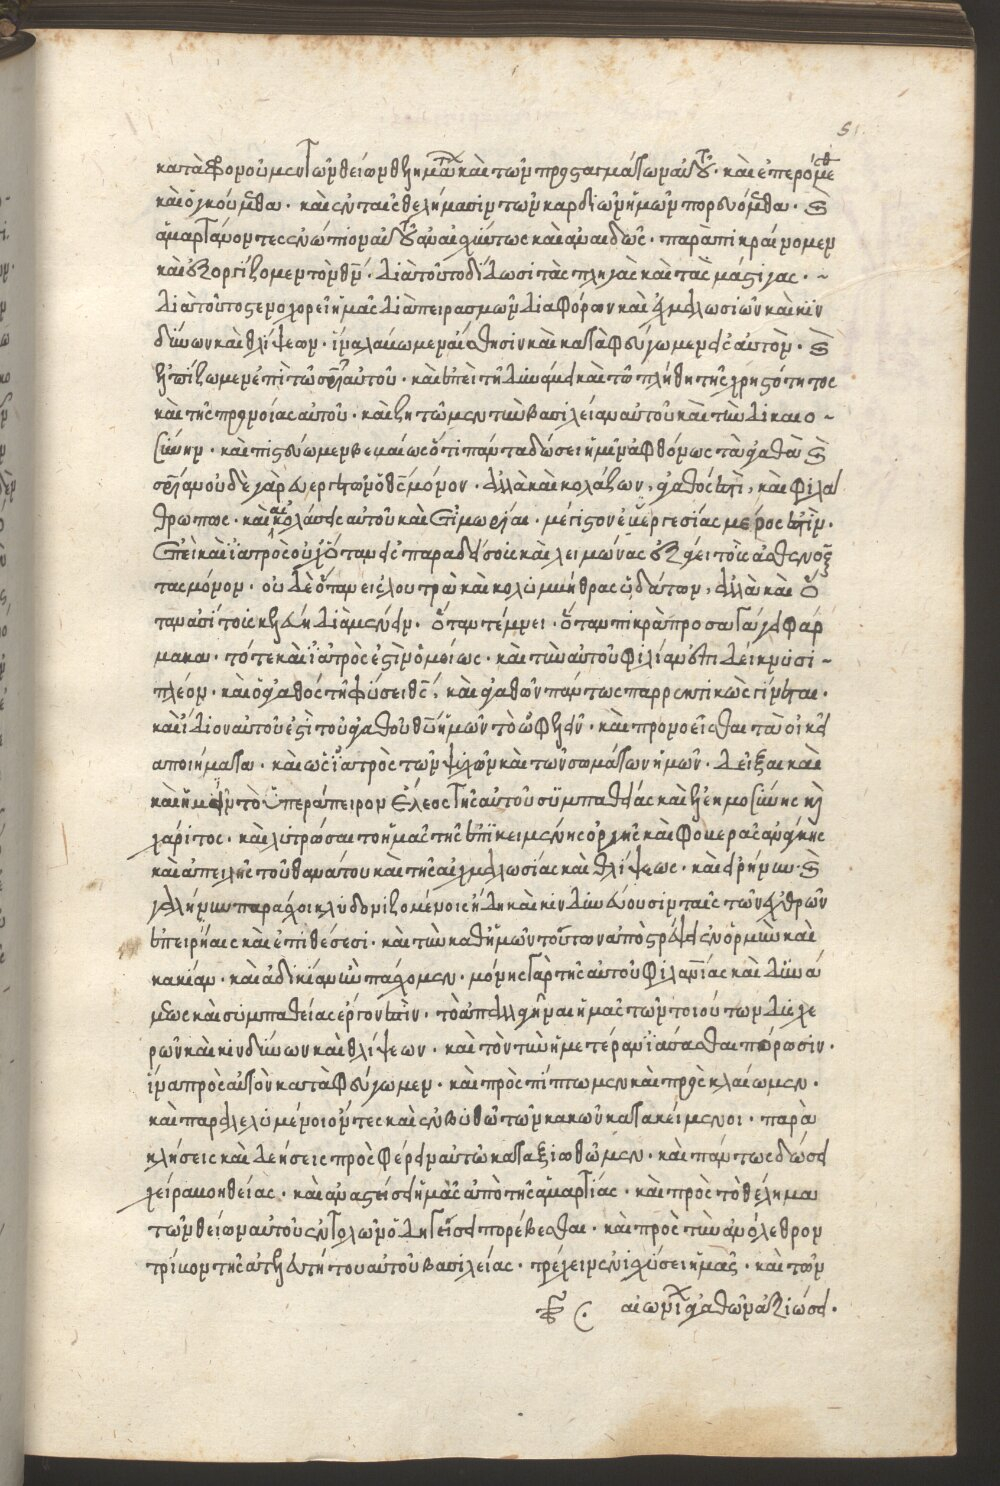 51
καταφρονοῦμεν τῶν θείων θελημάτων καὶ τῶν προσταγμάτων αὐτοῦ· καὶ ἐπερόμεθα
καὶ ὀγκούμεθα· καὶ ἐν ταῖς θελήμασιν τῶν καρδιῶν ἡμῶν πορευόμεθα· καὶ
ἁμαρτάνοντες ἐνώπιον αὐτοῦ ἀναισχύντως καὶ ἀναιδῶς· παραπικραίνομεν
καὶ ἐξοργίζομεν τὸν θν· διὰ τοῦτο δίδωσι τὰς πληγὰς καὶ τὰς μάστιγας·
διὰ τοῦτο στενοχορεῖ ἡμᾶς διὰ πειρασμῶν διαφόρων καὶ αἰχμαλωσιῶν καὶ κιν
δύνων καὶ θλίψεων· ἵνα λάβωμεν αἴσθησιν καὶ καταφύγωμεν εἰς αὐτὸν· καὶ
ἐλπίζωμεν ἐπὶ τῷ σρι αὐτοῦ· καὶ ἐπὶ τῇ δυνάμει καὶ τῷ πλήθει τῆς χρηστότητος
καὶ τῆς προνοίας αὐτοῦ· καὶ ζητῶμεν τὴν βασιλείαν αὐτοῦ καὶ τὴν δικαιο
σύνην· καὶ πιστεύωμεν βεβαίως ὅτι πάντα δώσει ἡμῖν ἀφθόνως τὰ ἀγαθὰ καὶ
σρίαν οὐδὲ γὰρ εὐεργετῶν ὁ θς μόνον· ἀλλὰ καὶ κολάζων, ἀγαθός ἐστι, καὶ φιλάν
θρωπος· καὶ αἱ κολάσεις αὐτοῦ καὶ τιμωρίαι· μέγιστον εὐεργεσίας μέρος ἐστὶν·
ἐπεὶ καὶ ἰατρὸς οὐχ ὅταν εἰς παραδείσοις καὶ λειμώνας ἐξάγει τοὺς ἀσθενοῦν
τας μόνον· οὐδὲ ὅταν εἰς λουτρὰ καὶ κολυμβήθρας ὑδάτων, ἀλλὰ καὶ ὅ
ταν ἀσίτοις κελεύῃ διαμένειν· ὅταν τέμνει· ὅταν πικρὰ προσάγει φάρ
μακα· τότε καὶ ἰατρὸς ἐστὶν ὁμοίως· καὶ τὴν αὐτοῦ φιλίαν ἐπιδείκνυσι
πλέον· καὶ ὁ ἀγαθὸς τῇ φύσει θς, καὶ ἀγαθῶν πάντως παρρεκτικῶς γίνεται·
καὶ ἴδιον αὐτοῦ ἐστὶ τοῦ ἀγαθοῦ θυ ἡμῶν τὸ ὠφελεῖν· καὶ προνοεῖσθαι τὰ οἰκεῖ
α ποιήματα· καὶ ὡς ἰατρὸς τῶν ψυχῶν καὶ τῶν σωμάτων ἡμῶν· δεῖξαι καὶ
καὶ ἡμῖν τὸ ὑπεράπειρον ἔλεος τῆς αὐτοῦ συμπαθείας καὶ ἐλεημοσύνης καὶ
χάριτος· καὶ λυτρώσαιτο ἡμᾶς τῆς ἐπικειμένης ὀργῆς καὶ φοβερᾶς ἀνάγκης
καὶ ἀπειλῆς τοῦ θανάτου καὶ τῆς αἰχμαλωσίας καὶ θλίψεως· καὶ εἰρήνην καὶ
γαλήνην παράσχοι κλυδωνιζομένοις ἤδη καὶ κινδυνεύουσιν ταῖς τῶν ἐχθρῶν
ἐπειρήαις καὶ ἐπιθέσεσι· καὶ τὴν καθ᾽ ἡμῶν τούτων ἀποστρέψει ἐν ὁρμὴν καὶ
κακίαν· καὶ ἀδικίαν ἣν πάσχομεν· μόνης γὰρ τῆς αὐτοῦ φιλανίας καὶ δυνά
μεως καὶ συμπαθείας ἔργον ἐστὶν· τὸ ἀπαλλαγῆναι ἡμᾶς τῶν τοιούτων δυσχε
ρῶν καὶ κινδύνων καὶ θλίψεων· καὶ τὸν τὴν ἡμετέραν ἰάσασθαι πόρωσιν·
ἵνα πρὸς αὐτὸν καταφύγωμεν· καὶ πρὸς πίπτωμεν καὶ προς κλαίωμεν·
καὶ παραλελυμένοι ὄντες καὶ ἐν βυθῷ τῶν κακῶν κατακείμενοι· παρα
κλήσεις καὶ δεήσεις προσφέρειν αὐτῷ καταξιωθῶμεν· καὶ πάντως δώσει
χεῖρα βοηθείας· καὶ ἀναστείσει ἡμᾶς ἀπὸ τῆς ἁμαρτίας· καὶ πρὸς τὸ θέλημα
τῶν θείων αὐτοῦ ἐντολῶν ὁδηγεῖσει πορέβεσθαι· καὶ πρὸς τὴν ἀνόλεθρον
τρίβον τῆς ἀτελευτήτου αὐτοῦ βασιλείας· τρέχειν ἐνισχύσει ἡμᾶς· καὶ τῶν
αἰωνίων ἀγαθῶν ἀξιώσει·